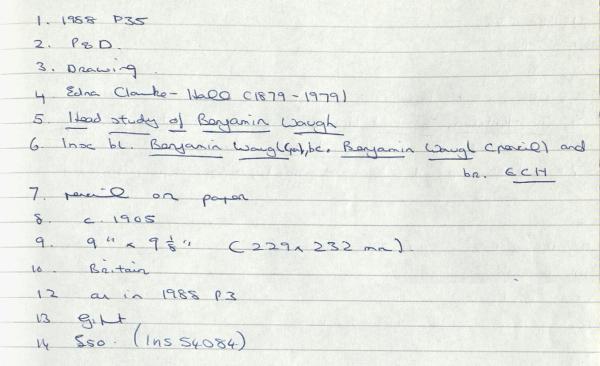 1. 1988 P35
2. P&D.
3. Drawing
4 Edna Clarke-Hall (1879-1979)
5. Head study of Benjamin Waugh
6. Insc bl. Benjamin Waugh(pen), bc. Benjamin Waugh (pencil) and
br. ECH
7. pencil on paper
8. c. 1905
9. 9" x 9 1/8" (229 x 232 mm).
10. Britain
12 as in 1988 P3
13 gift
14 £50. (Ins 54084)